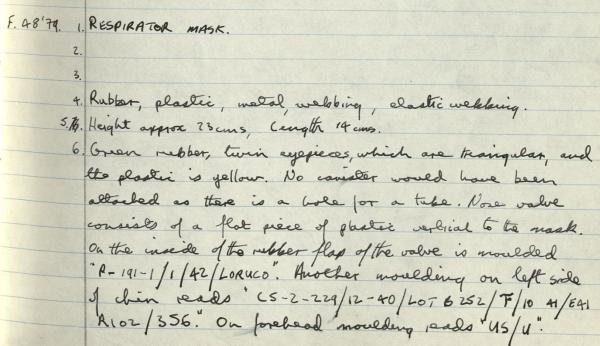 F.48'79. 1. RESPIRATOR MASK.
2.
3.
4. Rubber, plastic, metal, webbing, elastic webbing.
5. Height approx 23cms, Length 14cms.
6. Green rubber, twin eyepieces, which are triangular, and
the plastic is yellow. No canister would have been
attached as there is a hole for a tube. Nose valve
consists of a flat piece of plastic vertical to the mask.
On the inside of the rubber flap of the valve is moulded
"A-191-1/1/42/LORUCO". Another moulding on left side
of chin reads "C5-2-229/12-40/LOT B 252/F/10 41/EA1
A102/356." On forehead moulding reads "US/U".